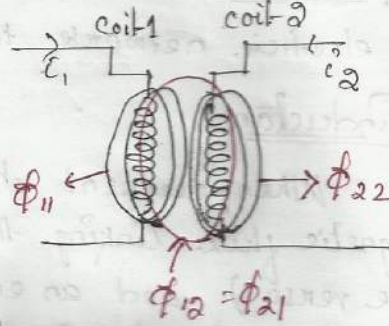 coil-1 coil-2
i₁ i₂
ϕ₁₁ ϕ₂₂
ϕ₁₂ = ϕ₂₁